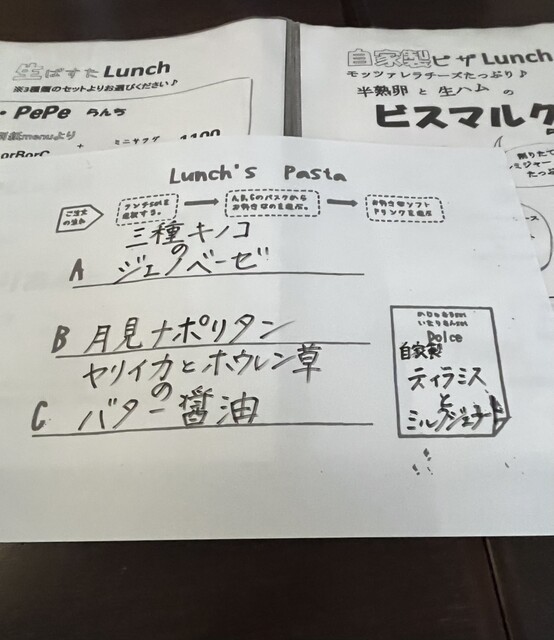 生ぱすたLunch
※3種類のセットよりお選びください♪
・PePe らんち
menuより
orBorC
+
ミニサラダ
1100
自家製ピザLunch
モッツァレラチーズたっぷり♪
半熟卵と生ハムの
ビスマルク
削りたて
ミジャー
たっぷ
Lunch's Pasta
ご注文
の流れ
ランチSetを
選択する。
A,B,Cのパスタから
お好きなのを選ぶ。
お好きなソフト
ドリンクを選ぶ
三種キノコ
の
A ジェノベーゼ
B 月見ナポリタン
ヤリイカとホウレン草
の
C バター醤油
Dolce
自家製
ティラミス
と
ミルクジェラート